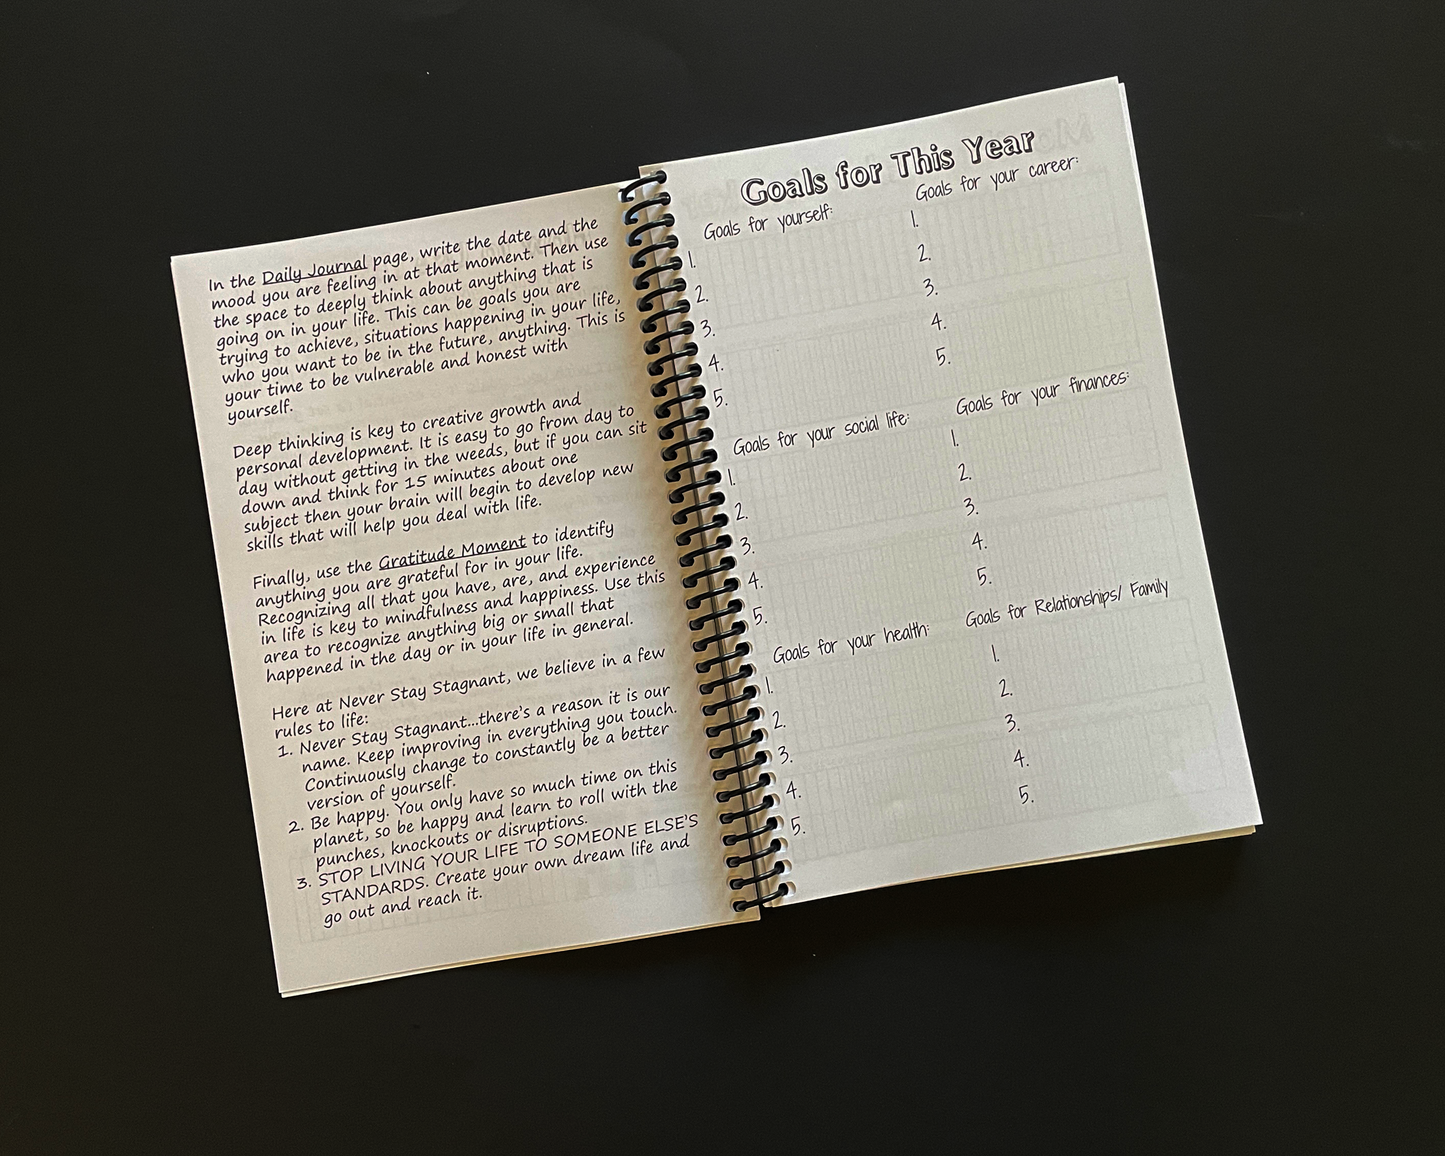 In the Daily Journal page, write the date and the
mood you are feeling in at that moment. Then use
the space to deeply think about anything that is
going on in your life. This can be goals you are
trying to achieve, situations happening in your life,
who you want to be in the future, anything. This is
your time to be vulnerable and honest with
yourself.
Deep thinking is key to creative growth and
personal development. It is easy to go from day to
day without getting in the weeds, but if you can sit
down and think for 15 minutes about one
subject then your brain will begin to develop new
skills that will help you deal with life.
Finally, use the Gratitude Moment to identify
anything you are grateful for in your life.
Recognizing all that you have, are, and experience
in life is key to mindfulness and happiness. Use this
area to recognize anything big or small that
happened in the day or in your life in general.
Here at Never Stay Stagnant, we believe in a few
rules to life:
1. Never Stay Stagnant...there's a reason it is our
name. Keep improving in everything you touch.
Continuously change to constantly be a better
version of yourself.
2. Be happy. You only have so much time on this
planet, so be happy and learn to roll with the
punches, knockouts or disruptions.
3. STOP LIVING YOUR LIFE TO SOMEONE ELSE'S
STANDARDS. Create your own dream life and
go out and reach it.
Goals for This Year
Goals for yourself:
1.
2.
3.
4.
5.
Goals for your career:
1.
2.
3.
4.
5.
Goals for your social life:
1.
2.
3.
4.
5.
Goals for your finances:
1.
2.
3.
4.
5.
Goals for your health:
1.
2.
3.
4.
5.
Goals for Relationships/ Family
1.
2.
3.
4.
5.